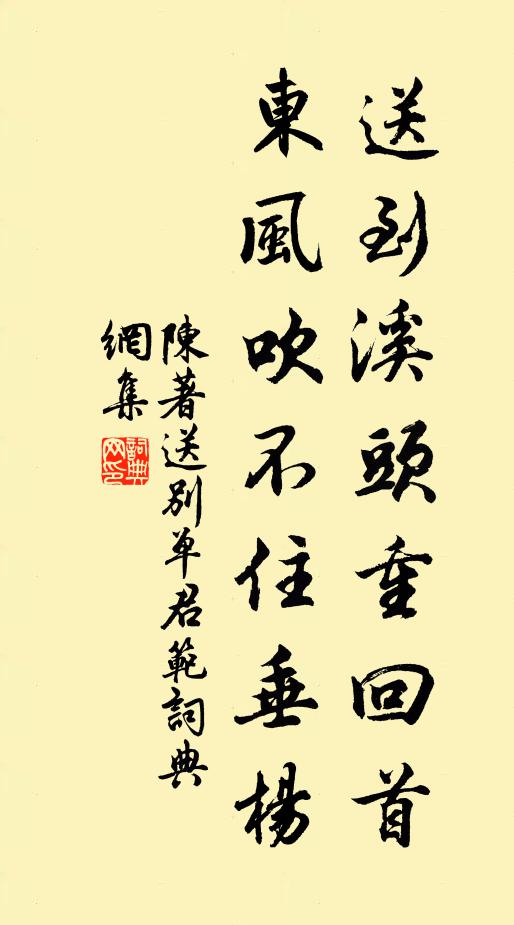 送到溪頭重回首
東風吹不住垂楊
陳著送別單君範詞典
網集
詞典
网印